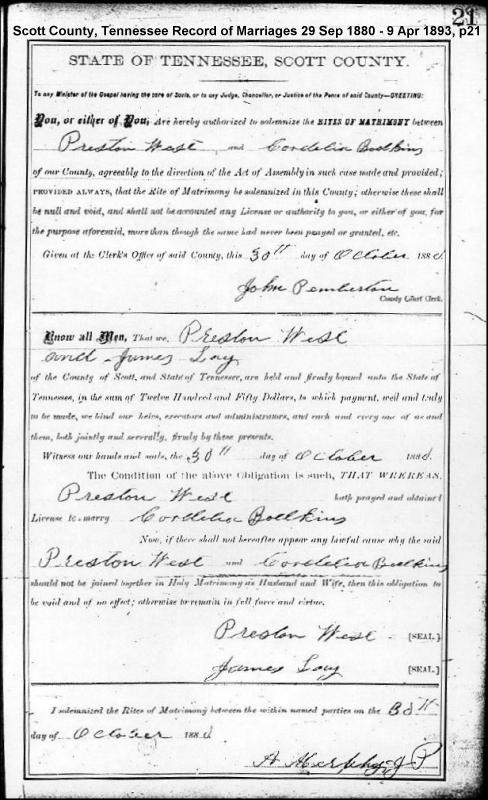 21
Scott County, Tennessee Record of Marriages 29 Sep 1880 - 9 Apr 1893, p21
STATE OF TENNESSEE, SCOTT COUNTY.
To any Minister of the Gospel having the care of Souls, or to any Judge, Chancellor, or Justice of the Peace of said County—GREETING:
You, or either of You, Are hereby authorized to solemnize the RITES OF MATRIMONY between
Preston West and Cordelia Bollkins
of our County, agreeably to the direction of the Act of Assembly in such case made and provided;
PROVIDED ALWAYS, that the Rite of Matrimony be solemnized in this County; otherwise these shall
be null and void, and shall not be accounted any License or authority to you, or either of you, for
the purpose aforesaid, more than though the same had never been prayed or granted, etc.
Given at the Clerk's Office of said County, this 30th day of October 188
John Pemberton
County Court Clerk.
Know all Men, That we, Preston West
and James Lay
of the County of Scott, and State of Tennessee, are held and firmly bound unto the State of
Tennessee, in the sum of Twelve Hundred and Fifty Dollars, to which payment, well and truly
to be made, we bind our heirs, executors and administrators, and each and every one of us and
them, both jointly and severally, firmly by these presents.
Witness our hands and seals, the 30th day of October 188
The Condition of the above Obligation is such, THAT WHEREAS,
Preston West hath prayed and obtained
License to marry Cordelia Bollkins
Now, if there shall not hereafter appear any lawful cause why the said
Preston West and Cordelia Bollkins
should not be joined together in Holy Matrimony as Husband and Wife, then this obligation to
be void and of no effect; otherwise to remain in full force and virtue.
Preston West [SEAL.]
James Lay [SEAL.]
I solemnized the Rites of Matrimony between the within named parties on the 30th
day of October 188
A Murphy J P